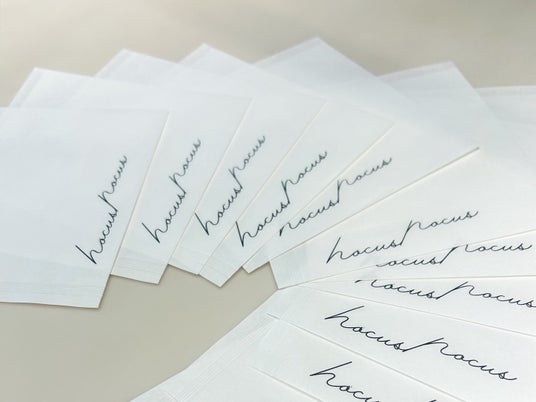 hocus pocus
hocus pocus
hocus pocus
hocus pocus
hocus pocus
hocus pocus
ocus pocus
ocus pocus
hocus pocus
hocus